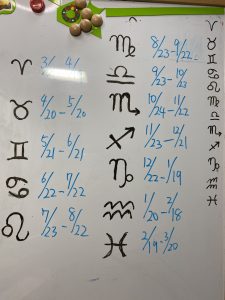 ♈ 3/ 4/
♉ 4/20-5/20
♊ 5/21-6/21
♋ 6/22-7/22
♌ 7/23-8/22
♍ 8/23-9/22
♎ 9/23-10/23
♏ 10/24-11/22
♐ 11/23-12/21
♑ 12/22-1/19
♒ 1/20-2/18
♓ 2/19-3/20
♈
♉
♊
♋
♌
♍
♎
♏
♐
♑
♒
♓